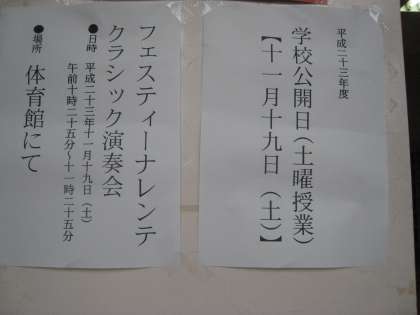 平成二十三年度
学校公開日(土曜授業)
【十一月十九日(土)】
フェスティーナレンテ
クラシック演奏会
●日時 平成二十三年十一月十九日(土)
午前十時二十五分~十一時二十五分
●場所 体育館にて